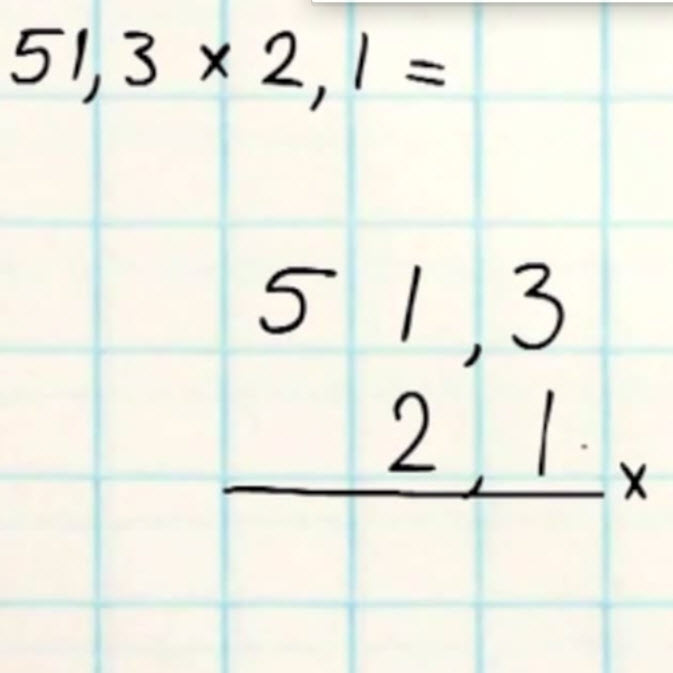 51,3 × 2,1 =
51,3
2,1
x